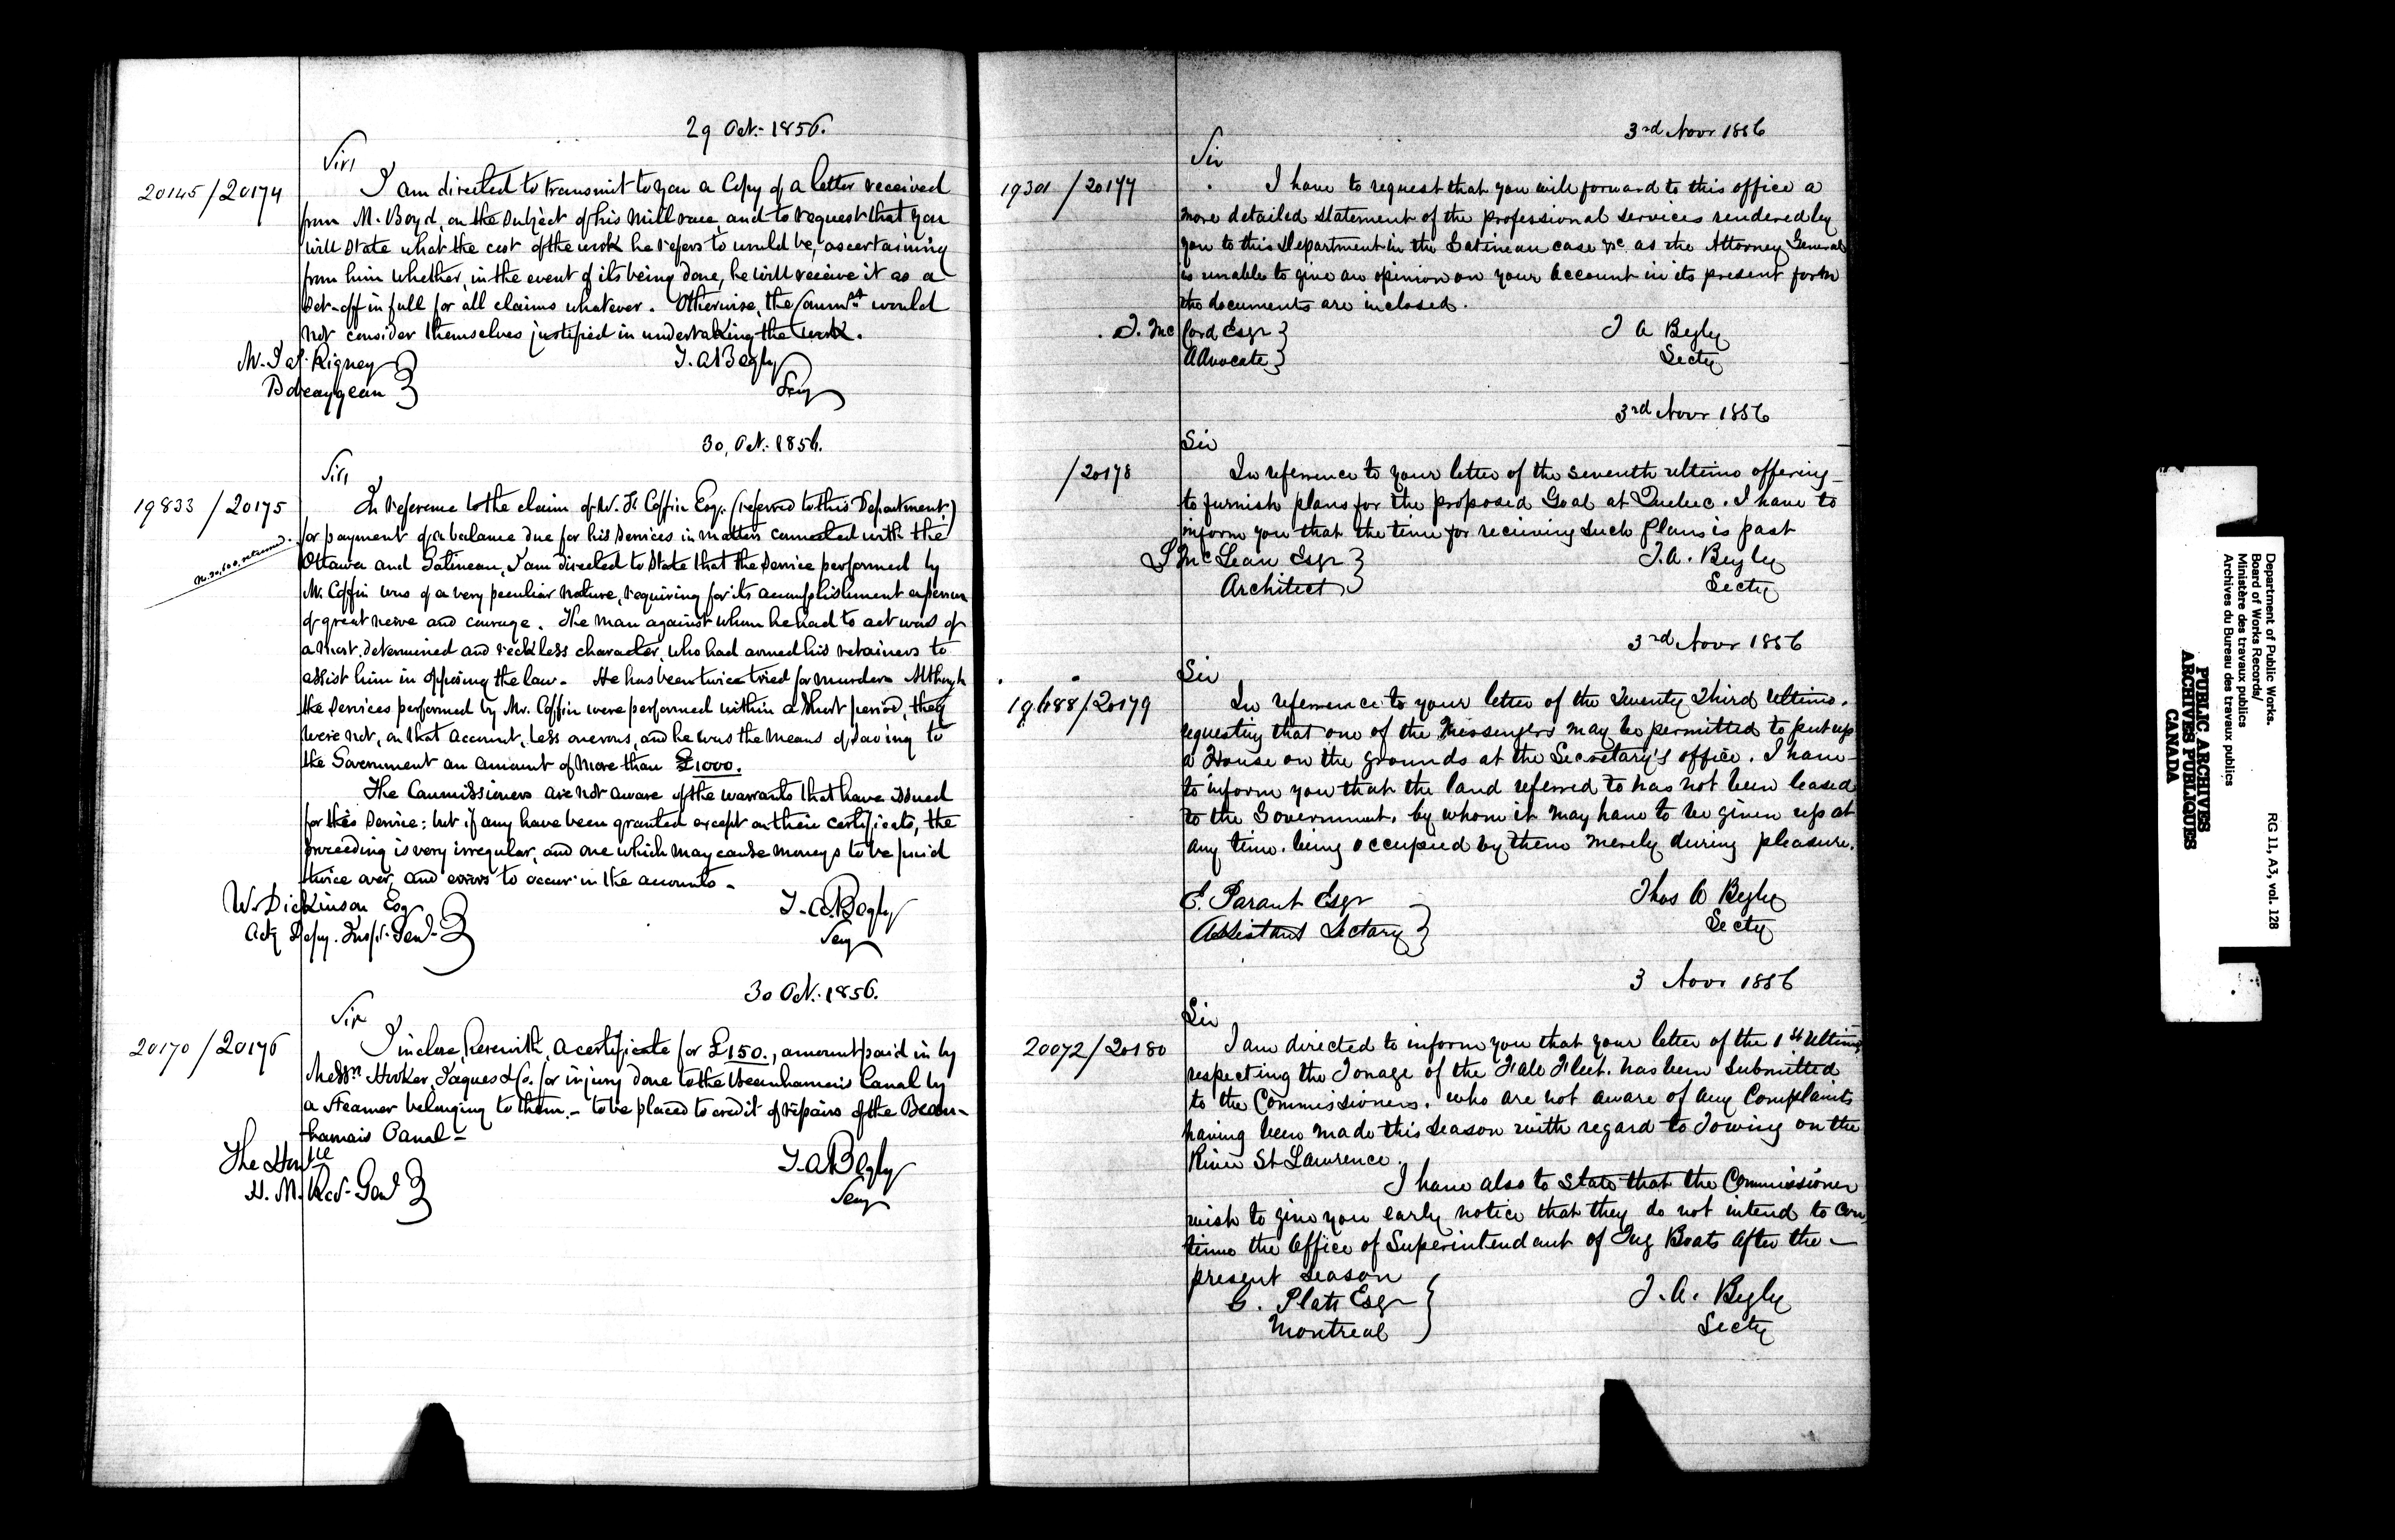 29 Oct.- 1856.
Sir,
20145/20174
I am directed to transmit to you a Copy of a letter received
from M. Boyd, on the subject of his Mill race and to request that you
will state what the cost of the work he refers to would be, ascertaining
from him whether, in the event of its being done, he will receive it as a
set-off in full for all claims whatever. Otherwise, the would
not consider themselves justified in undertaking the work.
M. Jas. Rigney
Bobcaygean
T. A. Begly
Secy
30, Oct. 1856.
Sir,
19833/20175
In reference to the claim of W. F. Coffin Esq. (referred to this Department)
for payment of a balance due for his services in matters connected with the
Ottawa and Gatineau, I am directed to state that the service performed by
Mr. Coffin was of a very peculiar nature, requiring for its accomplishment a person
of great nerve and courage. The man against whom he had to act was of
a most determined and reckless character, who had armed his retainers to
assist him in opposing the law. He has been twice tried for murder. Although
the services performed by Mr. Coffin were performed within a short period, they
were not, on that account, less onerous, and he was the means of saving to
the Government an amount of more than £1000.
The Commissioners are not aware of the warrants that have issued
for this service: but if any have been granted except on their certificate, the
proceeding is very irregular, and one which may cause moneys to be paid
twice over, and errors to occur in the accounts.
W. Dickinson Esq
Actg Depy. Insp. Genl.
T. A. Begly
Secy
30 Oct. 1856.
Sir
20170/20176
I inclose, herewith, a certificate for £150., amount paid in by
Messrs Hooker, Jaques & Co. for injury done to the Beauharnois Canal by
a steamer belonging to them.- to be placed to credit of repairs of the Beau-
harnois Canal-
The Honble
H. M. Recr. Genl
T. A. Begly
Secy
3rd Novr 1856
Sir
19301/20177
I have to request that you will forward to this office a
more detailed statement of the professional services rendered by
you to this Department in the Gatineau case &c. as the Attorney General
is unable to give an opinion on your Account in its present form
the documents are inclosed.
T. McCord Esqr
Advocate
T A Begly
Secty
3rd Novr 1856
Sir
/20178
In reference to your letter of the seventh ultimo offering
to furnish plans for the proposed Goal at Quebec. I have to
inform you that the time for receiving such Plans is past
McLean Esqr
Architect
T. A. Begly
Secty
3rd Novr 1856
Sir
19688/20179
In reference to your letter of the Twenty Third Ultimo.
requesting that one of the Messengers may be permitted to put up
a House on the grounds at the Secretary's office. I have
to inform you that the land referred to has not been leased
to the Government, by whom it may have to be given up at
any time. being occupied by them merely during pleasure.
E. Parant Esqr
Assistant Sectary
Thos A Begly
Secty
3 Novr 1856
Sir
20072/20180
I am directed to inform you that your letter of the 1st Ultimo
respecting the Tonage of the Fleet. has been submitted
to the Commissioners. who are not aware of any Complaints
having been made this season with regard to Towing on the
River St Lawrence.
I have also to state that the Commissioner
wish to give you early notice that they do not intend to con
tinue the Office of Superintendant of Tug Boats after the -
present season
G. Platt Esqr
Montreal
T. A. Begly
Secty
Department of Public Works.
Board of Works Records/
Ministère des travaux publics
Archives du Bureau des travaux publics
RG 11, A3, vol. 128
PUBLIC ARCHIVES
ARCHIVES PUBLIQUES
CANADA